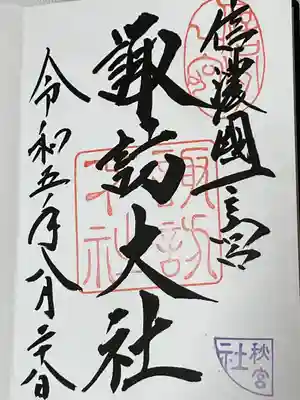 信濃國一之宮
諏訪大社
諏訪
大社
令和五年八月二十八日
秋宮
社